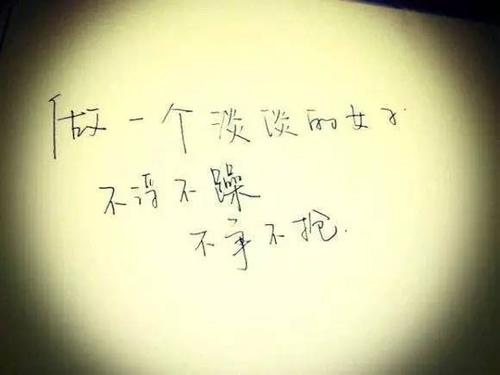 做一个淡淡的女子
不浮不躁
不争不抢.